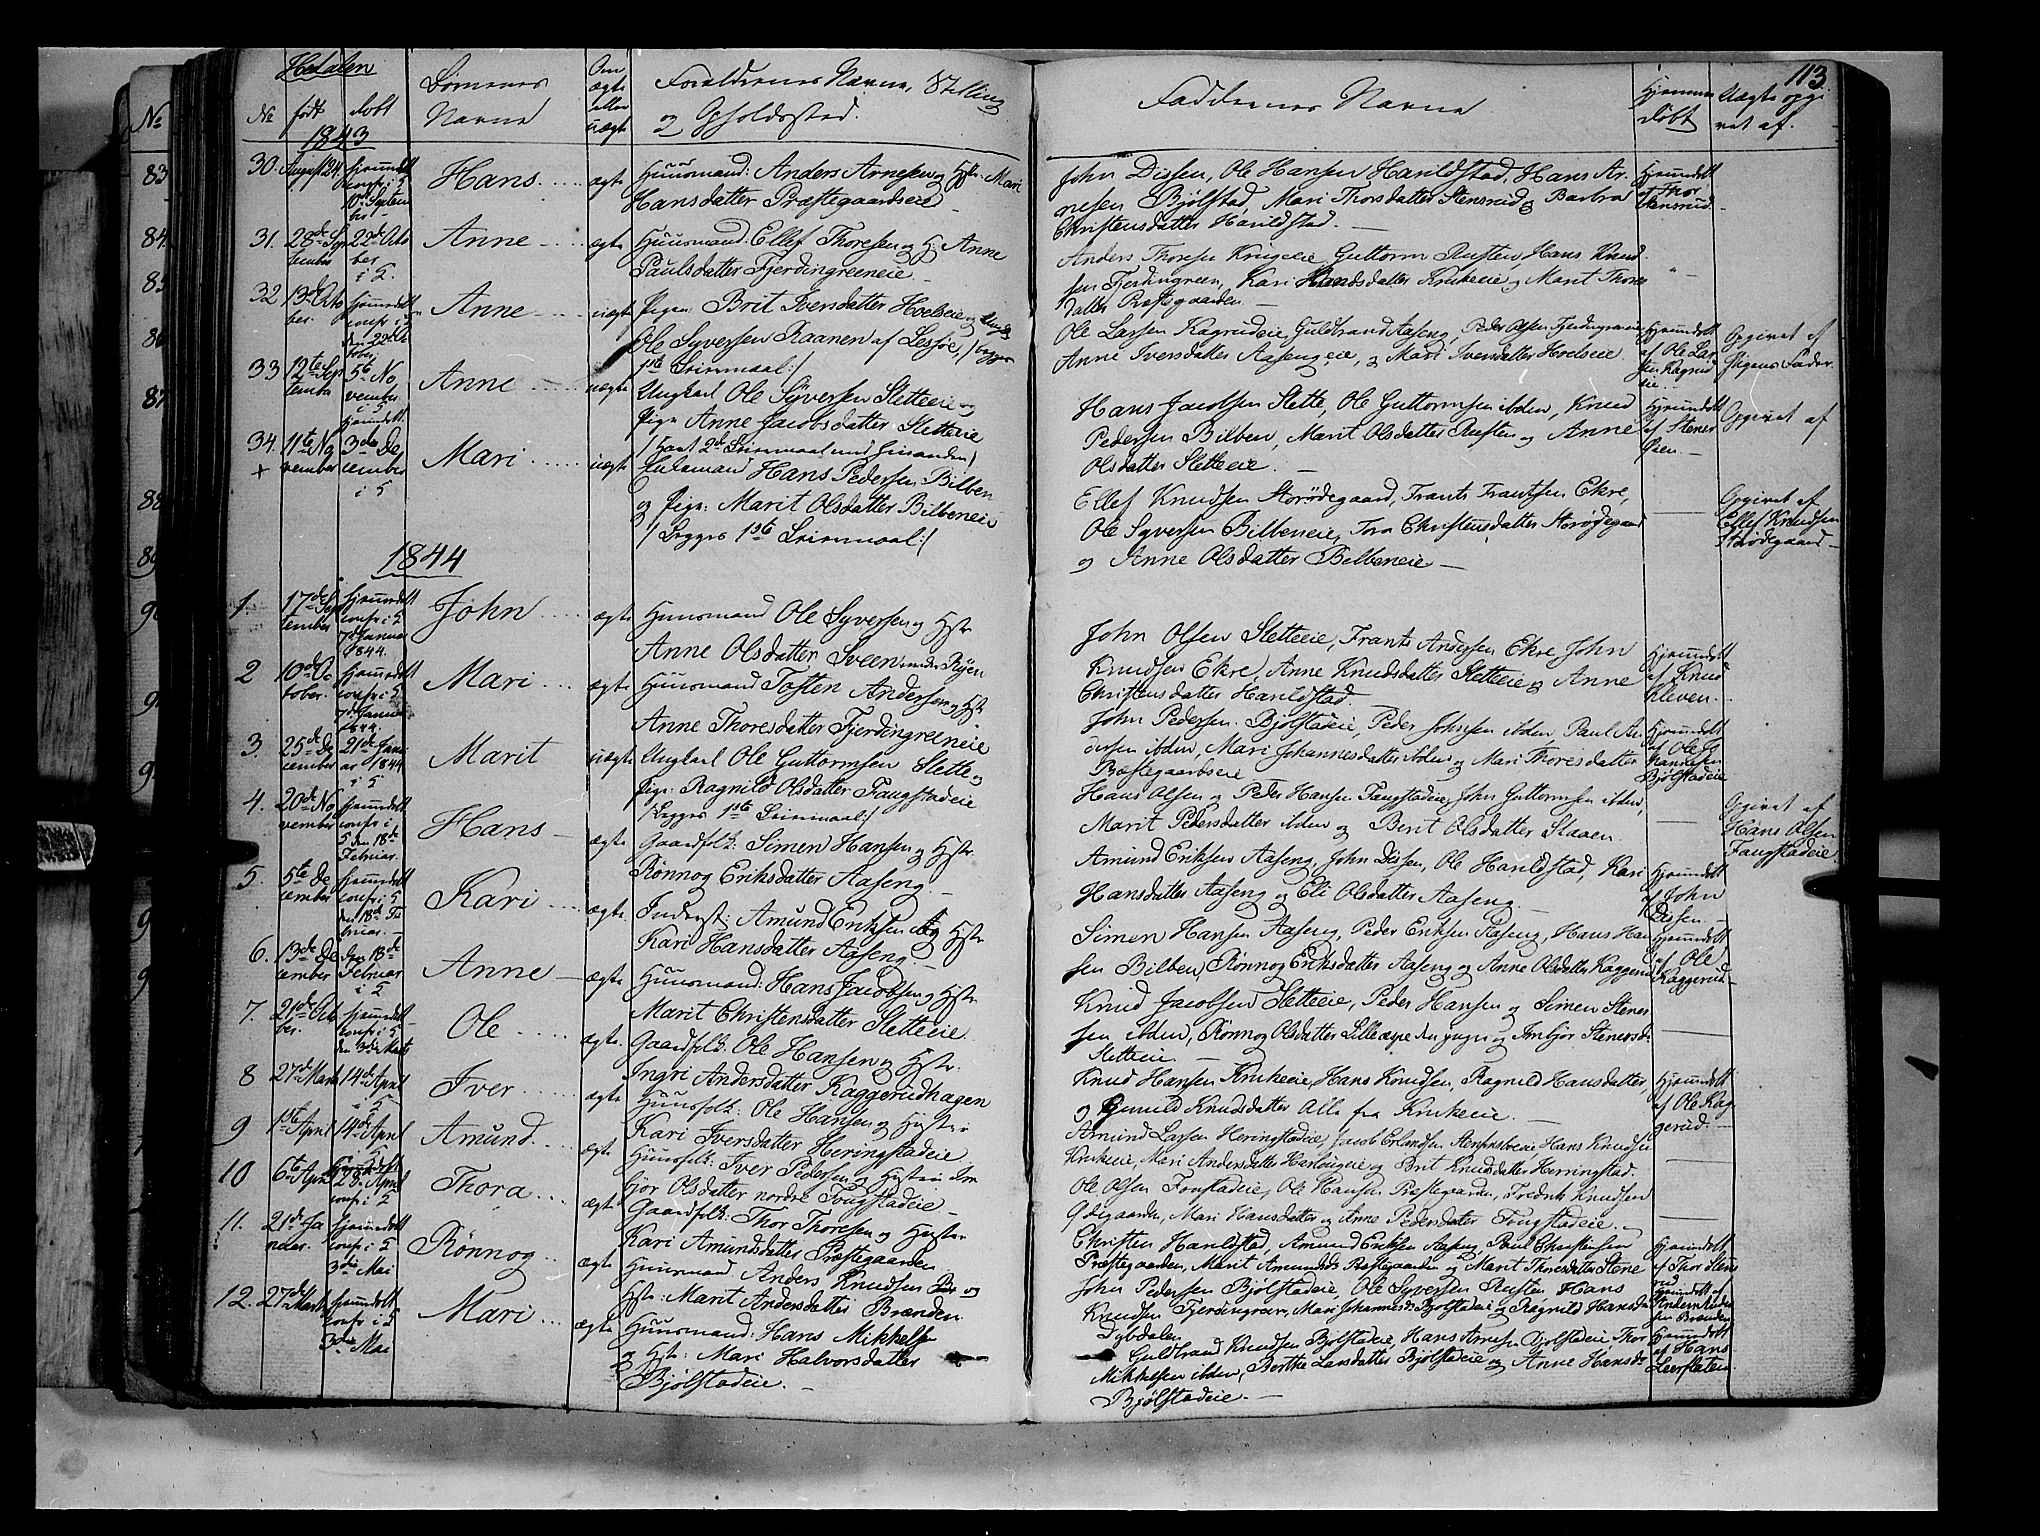 113
Hedalen
No født døbt
Børnenes Navne
Om ægte eller uægte
Forældrenes Navne, Stilling og Opholdssted.
Faddernes Navne
Hjemme døbt
Uægte opgivet af.
1843
30. August 24. hjemmedøbt confr: i 5 10. September
Hans
ægte
Huusmand: Anders Arnesen og Hstr: Mari
Hansdatter Præstegaardseie
John Dissen, Ole Hansen Harildstad, Hans Ar-
nesen Bjølstad, Mari Thorsdatter Stensrud og Barbra
Christensdatter Harildstad. —
Hjemmedøbt af Thor Stensrud
31. 28de September 22de October i 5.
Anne
ægte
Huusmand: Ellef Thoresen og H: Anne
Paulsdatter Fjerdingreeneie
Anders Thoresen Krukeeie, Guttorm Rusten, Hans Knud-
sen Fjerdingreen, Kari Hansdatter Krukeeie og Marit Thores
datter Præstgaarden —
32 13de October. hjemmedøbt confr: i 5 den 22de October
Anne
uægte
Pigen Brit Iversdatter Hoelseie og Ungk:
Ole Syversen Raanen af Lessøe, / begges
1ste Leiermaal:/
Ole Larsen Kagrudeie, Guldbrand Aaseng, Peder Olsen Fjerdingreneie
Anne Iversdatter Aasengeie, og Mari Iversdatter Hoelseie
Hjemmedøbt af Ole Larsen Kagrudeie.
Opgivet af Pigens Fader.
33 12te September 5te November i 5 hjemdøbt.
Anne
uægte
Ungkarl Ole Syversen Sletteeie og
Pige Anne Jacobsdatter Sletteeie
/ Hans 2de Leiermaal med hinanden /
Hans Jacobsen Slette, Ole Guttormsen ibden, Knud
Pedersen Bilben, Marit Olsdatter Rusten og Anne
Olsdatter Sletteeie. —
Hjemmedøbt af Stener Øien. —
Opgivet af
34. + 11te November 3die December i 5
Mari
uægte
Enkemand Hans Pedersen Bilben
og Pige: Marit Olsdatter Bilbeneie
/ Begges 1ste Leiermaal:/
Ellef Knudsen Storødegaard, Frants Frantsen Ekre,
Ole Syversen Bilbeneie, Tora Christensdatter Storødegaard
og Anne Olsdatter Bilbeneie —
Opgivet af Ellef Knudsen Storødegaard —
1844
1. 17de September hjemmedøbt confr: i 5 7de Januar 1844.
John
ægte
Huusmand Ole Syversen og Hstr
Anne Olsdatter Sveen under Ryen
John Olsen Sletteeie, Frants Andersen Ekre, John
Knudsen Ekre, Anne Knudsdatter Sletteeie og Anne
Christensdatter Harildstad
Hjemmedøbt af Knud Kleven —
2 10de October. hjemmedøbt confr: i 5 7de Januar 1844.
Mari
ægte
Huusmand Tosten Andersen og Hst
Anne Thoresdatter Fjerdingreeneie
John Pedersen Bjølstadeie, Peder Johnsen ibden, Paul An-
dersen ibden, Mari Johannesdatter ibden og Mari Thoresdatter
Præstegaardseie
Hjemmedøbt af Ole Johannesen Bjølstadeie
3. 25de December 21de Januar 1844 i 5
Marit
uægte
Ungkarl Ole Guttormsen Slette og
Pige: Ragnild Olsdatter Faugstadeie
/ Begges 1ste Leiermaal:/
Hans Olsen og Peder Hansen Faugstadeie, John Guttormsen ibden,
Marit Pedersdatter ibden og Berit Olsdatter Staaen
Opgivet af Hans Olsen Faugstadeie
4. 20de November hjemmedøbt confr: i 5 den 18de Februar.
Hans
ægte
Gaardfolk: Simen Hansen og Hstr:
Rønnog Eriksdatter Aaseng. —
Amund Eriksen Aaseng, John Dissen, Ole Harildstad, Kari
Hansdatter Aaseng og Eli Olsdatter Aaseng. —
Hjemmedøbt af John Dissen. —
5. 5te December hjemmedøbt confr: i 5 den 18de Februar.
Kari
ægte.
Inderst: Amund Eriksen og Hstr
Kari Hansdatter Aaseng —
Simen Hansen Aaseng, Peder Eriksen Aaseng, Hans Han-
sen Bilben, Rønnog Eriksdatter Aaseng og Anne Olsdatter Kaggerud
Hjemmedøbt af Ole Kaggerud —
6. 13de December den 18de Februar i 5
Anne
ægte
Huusmand: Hans Jacobsen og Hstr
Marit Christensdatter Sletteeie
Knud Jacobsen Sletteeie, Peder Hansen og Simen Stener-
sen ibden, Rønnog Olsdatter Lilleæpe den yngre og Imbjør Stenersd:
Sletteeie —
7. 21de October. hjemmedøbt confr: i 5 den 3de Marts
Ole
ægte.
Gaardfolk: Ole Hansen og Hstr:
Ingri Andersdatter Kaggerudhagen
Knud Hansen Krukeeie, Hans Knudsen, Ragnild Hansdatter
og Gunild Knudsdatter Alle fra Krukeeie. —
Hjemmedøbt af Ole Kaggerud. —
8 27de Marts 14de April i 5
Iver
ægte
Huusfolk: Ole Hansen og Hustrue
Kari Iversdatter Heringstadeie
Amund Larsen Heringstadeie, Jacob Erlandsen Stensboeie, Hans Knudsen
Krukeeie, Mari Andersdatter Harlougeie og Brit Knudsdatter Herringstad.
9 1ste April 14de April
Amund
ægte
Huusfolk: Iver Pedersen og Hustrue Im-
bjør Olsdatter nordre Fougstadeie —
Ole Olsen Fougstadeie, Ole Hansen Præstegaarden, Fredrik Knudsen
Ødegaarden, Mari Hansdatter og Anne Pedersdatter Fougstadeie. —
10 6te April hjemmedøbt 28de April confr: i 5
Thora
ægte
Gaardfolk: Thor Thoresen og Hustrue
Kari Amundsdatter Præstegaarden
Christen Harildstad, Amund Eriksen Aaseng, Paul Christensen
Præstegaarden, Marit Amundsd: Præstegaarden og Marit Thoresdatter Stene
Hjemmedøbt af Thor Stensrud
11. 21de Januar. hjemmedøbt confr: i 5 3die Mai
Rønnog
ægte
Huusmand Anders Knudsen og
Hstr: Marit Andersdatter Brænden
John Pedersen Bjølstadeie, Ole Syversen Rusten, Hans
Knudsen Fjerdingreen, Mari Johannesd: Bjølstadeie og Ragnild Hansda
Dybdalen
Hjemmedøbt af Anders Andersen Brænden
12. 27de Marts hjemmedøbt confr: i 5 3die Mai
Mari
ægte
Huusmand: Hans Mikkelsen
og Hstr: Mari Halvorsdatter
Bjølstadeie. —
Guldbrand Knudsen Bjølstadeie, Hans Arnesen Bjølstadeie, Thor
Mikkelsen ibden, Berthe Larsdatter Bjølstadeie og Anne Hansd:
Bjølstadeie —
Hjemmedøbt af Hans Leerflaten
No
83
84
85
86
87
88
89